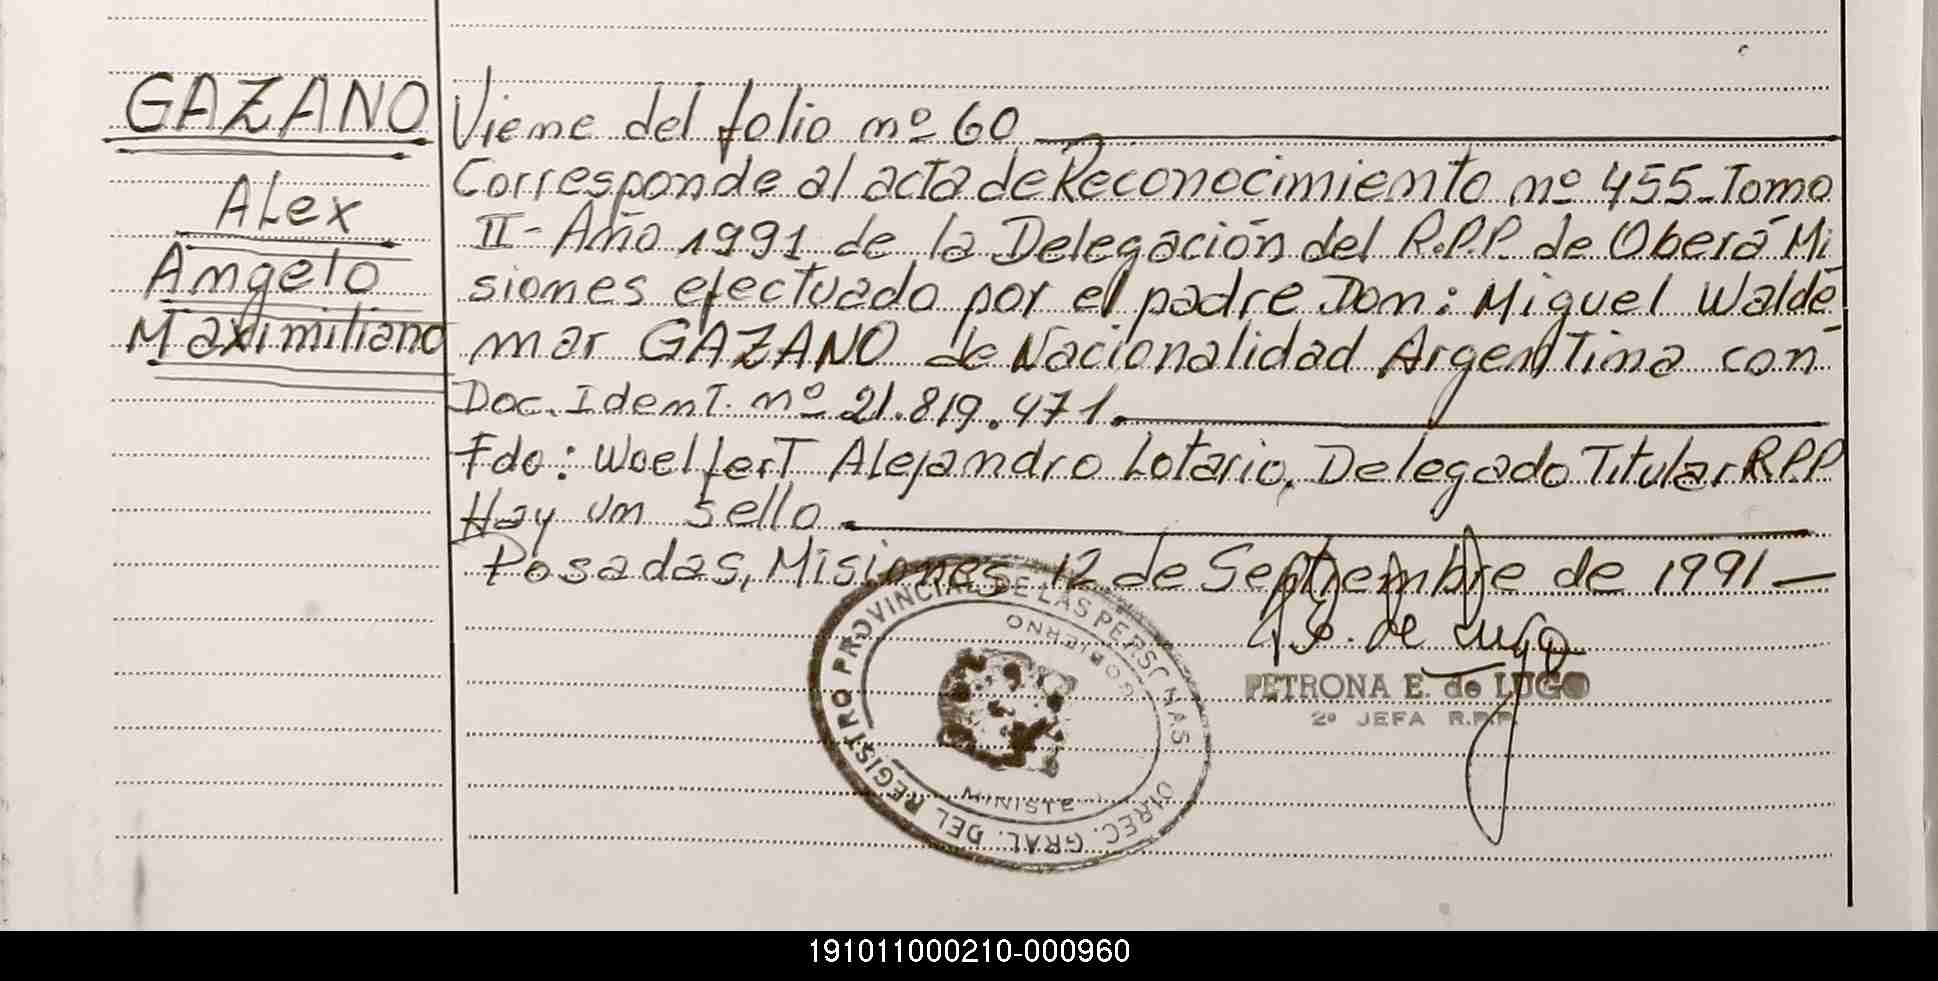 GAZANO
Alex
Angelo
Maximiliano
Viene del folio nº 60
Corresponde al acta de Reconocimiento nº 455-Tomo
II- Año 1991 de la Delegación del R.P.P. de Oberá Mi
siones efectuado por el padre Don: Miguel Walde
mar GAZANO de Nacionalidad Argentina con
Doc. Ident. nº 21.819.471.
Fdo: Woelfert Alejandro Lotario, Delegado Titular R.P.P
Hay un sello.
Posadas, Misiones 12 de Septiembre de 1991 —
DIREC. GRAL. DEL REGISTRO PROVINCIAL DE LAS PERSONAS
GOBIERNO
E. de Lugo
PETRONA E. de LUGO
2º JEFA R.P.P.
191011000210-000960